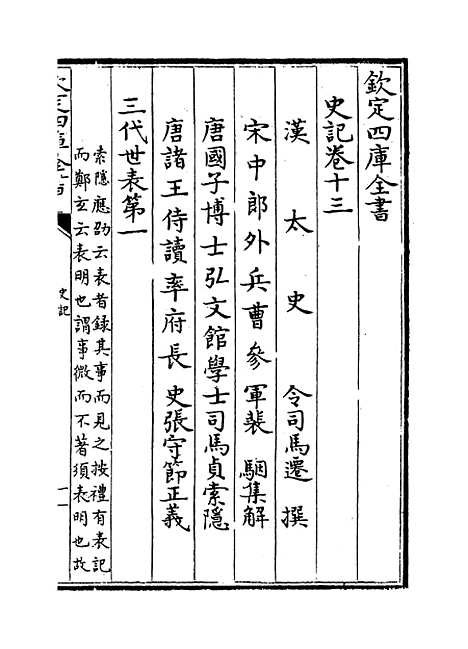 欽定四庫全書
史記卷十三
漢太史令司馬遷撰
宋中郎外兵曹參軍裴駰集解
唐國子博士弘文館學士司馬貞索隱
唐諸王侍讀率府長史張守節正義
三代世表第一
索隱應劭云表者録其事而見之按禮有表記
而鄭玄云表明也謂事微而不著須表明也故
欽定四庫全書
史記
一